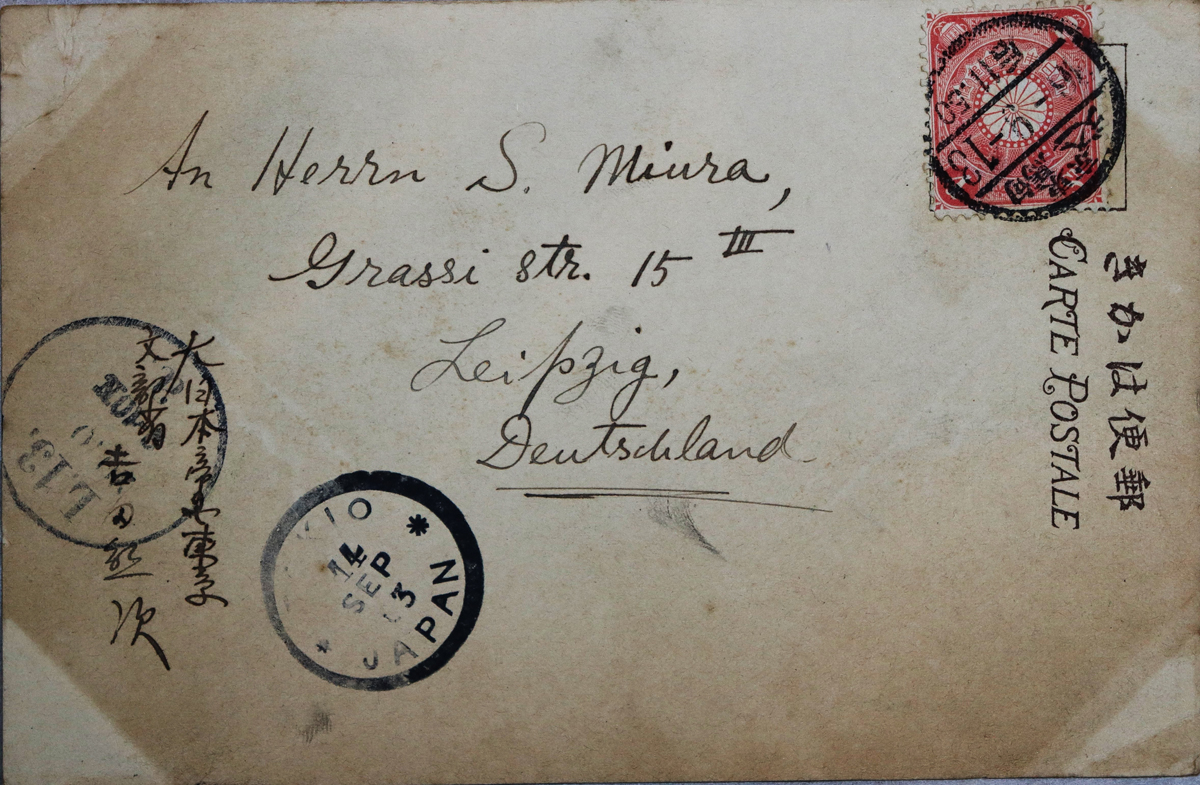 An Herrn S. Miura,
Grassi str. 15 III
Leipzig,
Deutschland
郵便はかき
CARTE POSTALE
大日本帝国東京
文部省
吉田熊次
KIO
14
SEP
03
JAPAN
L.13.